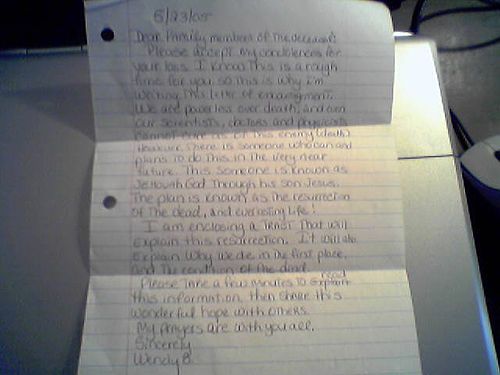 5/23/05
Dear Family members of the deceased:
Please accept my condolences for
your loss. I know This is a rough
time for you, so this is why I'm
writing This letter of encouragement.
We are powerless over death, and even
our scientists, doctors and physicists
cannot cure us of This enemy (death).
However, There is someone who can and
plans to do This in the very near
future. This someone is known as
Jehovah God Through his son Jesus.
The plan is known as The resurrection
of The dead, and everlasting life!
I am enclosing a Tract That will
explain this resurrection. It will also
Explain Why we die in the first place,
and The condition of the dead.
Please Take a few minutes To read
this information, then share this
wonderful hope with others.
My Prayers are with you all.
Sincerely
Wendy B.